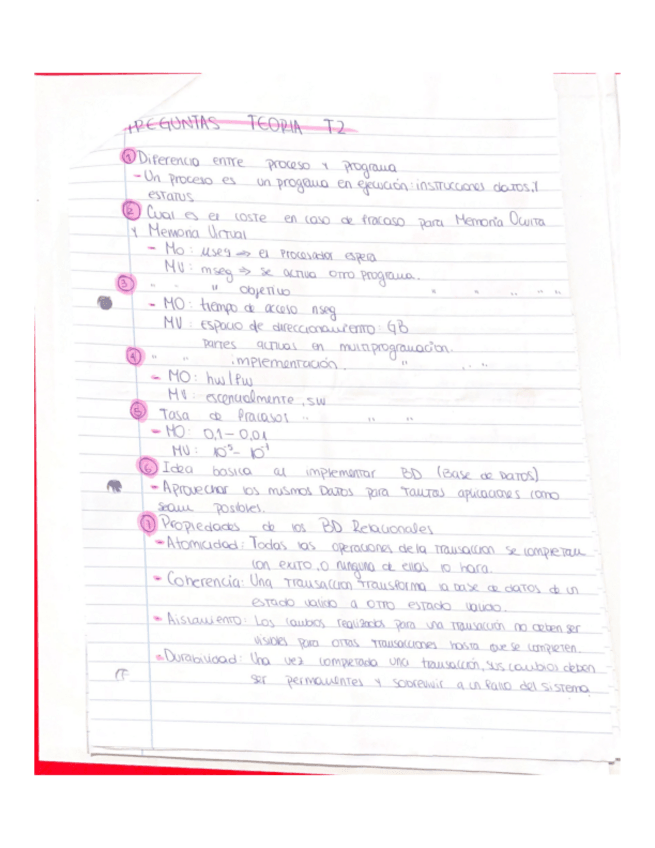 PREGUNTAS TEORIA T2
1 Diferencia entre proceso y programa
- Un proceso es un programa en ejecución: instrucciones, datos, y
estatus
2 Cual es el coste en caso de fracaso para Memoria Oculta
y Memoria Virtual
- MO: µseg => el procesador espera
MV: mseg => se activa otro programa.
3 " " " objetivo " " " " "
- MO: tiempo de acceso nseg
MV: espacio de direccionamiento: GB
partes activas en multiprogramacion.
4 " " implementación. " " "
- MO: hw/fw
MV: esencialmente, sw
5 Tasa de fracasos " " "
- MO: 0,1 - 0,01
MV:
6 Idea basica al implementar BD (Base de Datos)
- Aprovechar los mismos Datos para tantas aplicaciones como
sean posibles.
7 Propiedades de las BD Relacionales
- Atomicidad: Todas las operaciones de la transaccion se completan
con exito, o ninguna de ellas lo hara.
- Coherencia: Una transaccion transforma la base de datos de un
estado valido a otro estado valido.
- Aislamiento: Los cambios realizados para una transaccion no deben ser
visibles para otras transacciones hasta que se completen.
- Durabilidad: Una vez completada una transacción, sus cambios deben
ser permanentes y sobrevivir a un fallo del sistema